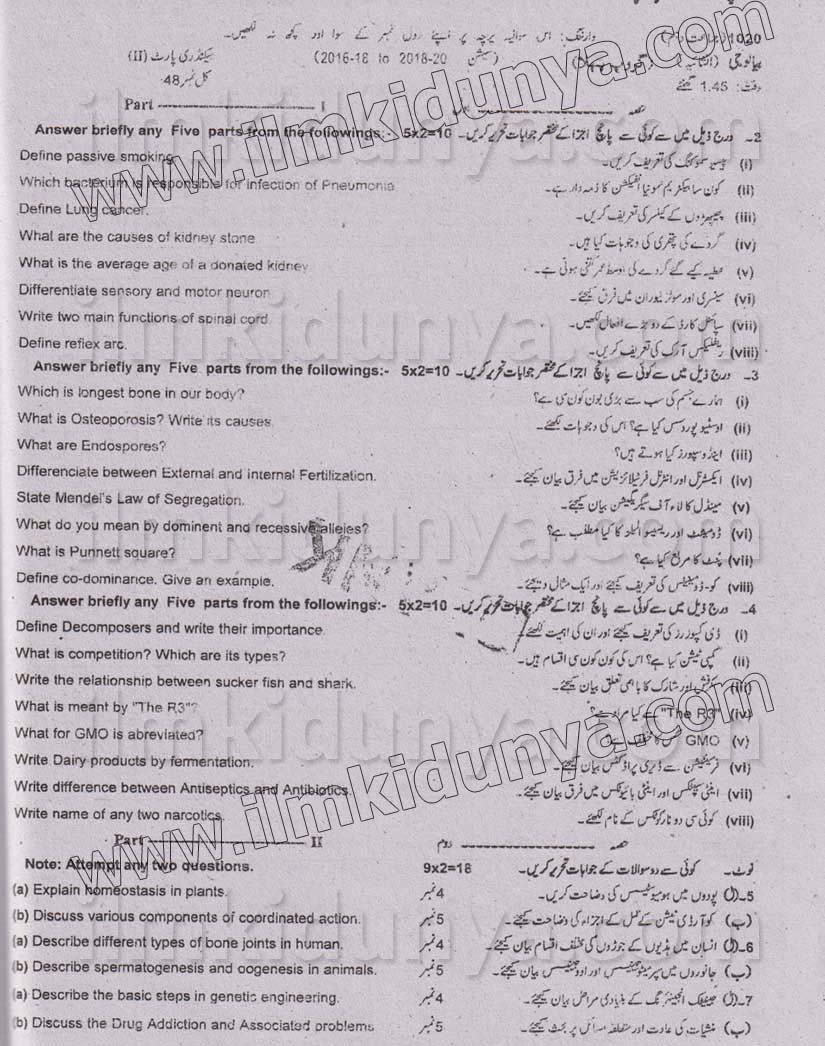 1020
وارننگ: اس سوالیہ پرچہ پر اپنے رول نمبر کے سوا اور کچھ نہ لکھیں۔
بیالوجی (انشائیہ) (سیشن 2016-18 to 2018-20) سیکنڈری پارٹ (II)
وقت: 1.45 گھنٹے کل نمبر 48
Part I حصہ
Answer briefly any Five parts from the followings:- 5x2=10 2۔ درج ذیل میں سے کوئی سے پانچ اجزا کے مختصر جوابات تحریر کریں۔
Define passive smoking (i) پیسیو سموکنگ کی تعریف کریں۔
Which bacterium is responsible for infection of Pneumonia (ii) کون سا بیکٹریم نمونیا انفیکشن کا ذمہ دار ہے۔
Define Lung cancer. (iii) پھیپھڑوں کے کینسر کی تعریف کریں۔
What are the causes of kidney stone (iv) گردے کی پتھری کی وجوہات کیا ہیں۔
What is the average age of a donated kidney (v) عطیہ کیے گئے گردے کی اوسط عمر کتنی ہوتی ہے۔
Differentiate sensory and motor neuron (vi) سینسری اور موٹر نیوران میں فرق کیجئے۔
Write two main functions of spinal cord (vii) سپائنل کارڈ کے دو بڑے افعال لکھیں۔
Define reflex arc. (viii) ریفلیکس آرک کی تعریف کریں۔
Answer briefly any Five parts from the followings:- 5x2=10 3۔ درج ذیل میں سے کوئی سے پانچ اجزا کے مختصر جوابات تحریر کریں۔
Which is longest bone in our body? (i) ہمارے جسم کی سب سے بڑی بون کون سی ہے؟
What is Osteoporosis? Write its causes. (ii) اوسٹیوپوروسس کیا ہے؟ اس کی وجوہات لکھئے۔
What are Endospores? (iii) اینڈوسپورز کیا ہوتے ہیں؟
Differenciate between External and internal Fertilization. (iv) ایکسٹرنل اور انٹرنل فرٹیلائزیشن میں فرق بیان کیجئے۔
State Mendel's Law of Segregation. (v) مینڈل کا لاء آف سیگریگیشن بیان کیجئے۔
What do you mean by dominent and recessive alleles? (vi) ڈومیننٹ اور ریسیسو الیلز کا کیا مطلب ہے؟
What is Punnett square? (vii) پنٹ کا مربع کیا ہے؟
Define co-dominance. Give an example. (viii) کو-ڈومیننس کی تعریف کیجئے اور ایک مثال دیجئے۔
Answer briefly any Five parts from the followings:- 5x2=10 4۔ درج ذیل میں سے کوئی سے پانچ اجزا کے مختصر جوابات تحریر کریں۔
Define Decomposers and write their importance. (i) ڈی کمپوزرز کی تعریف کیجئے اور ان کی اہمیت لکھئے۔
What is competition? Which are its types? (ii) کمپی ٹیشن کیا ہے؟ اس کی کون کون سی اقسام ہیں۔
Write the relationship between sucker fish and shark. (iii) سکرفش اور شارک کا باہمی تعلق بیان کیجئے۔
What is meant by "The R3"? (iv) "The R3" سے کیا مراد ہے؟
What for GMO is abreviated? (v) GMO
Write Dairy products by fermentation. (vi) فرمنٹیشن سے ڈیری پراڈکٹس بیان کیجئے۔
Write difference between Antiseptics and Antibiotics. (vii) اینٹی سپٹکس اور اینٹی بائیوٹکس میں فرق بیان کیجئے۔
Write name of any two narcotics. (viii) کوئی سی دو نارکوٹکس کے نام لکھئے۔
Part II حصہ دوم
Note: Attempt any two questions. 9x2=18 نوٹ۔ کوئی سے دو سوالات کے جوابات تحریر کریں۔
(a) Explain homeostasis in plants. 4نمبر 5۔(ا) پودوں میں ہومیوسٹیسس کی وضاحت کریں۔
(b) Discuss various components of coordinated action. 5نمبر (ب) کوآرڈی نیشن کے عمل کے اجزاء کی وضاحت کیجئے۔
(a) Describe different types of bone joints in human. 4نمبر 6۔(ا) انسان میں ہڈیوں کے جوڑوں کی مختلف اقسام بیان کیجئے۔
(b) Describe spermatogenesis and oogenesis in animals. 5نمبر (ب) جانوروں میں سپرمیٹوجینیسس اور اووجینیسس بیان کیجئے۔
(a) Describe the basic steps in genetic engineering. 4نمبر 7۔(ا) جینیٹک انجینئرنگ کے بنیادی مراحل بیان کیجئے۔
(b) Discuss the Drug Addiction and Associated problems 5نمبر (ب) منشیات کی عادت اور متعلقہ مسائل پر بحث کیجئے۔
www.ilmkidunya.com
www.ilmkidunya.com
ilmkidunya.com
ilmkidunya.com
ilmkidunya.com
ilmkidunya.com
ilmkidunya.com